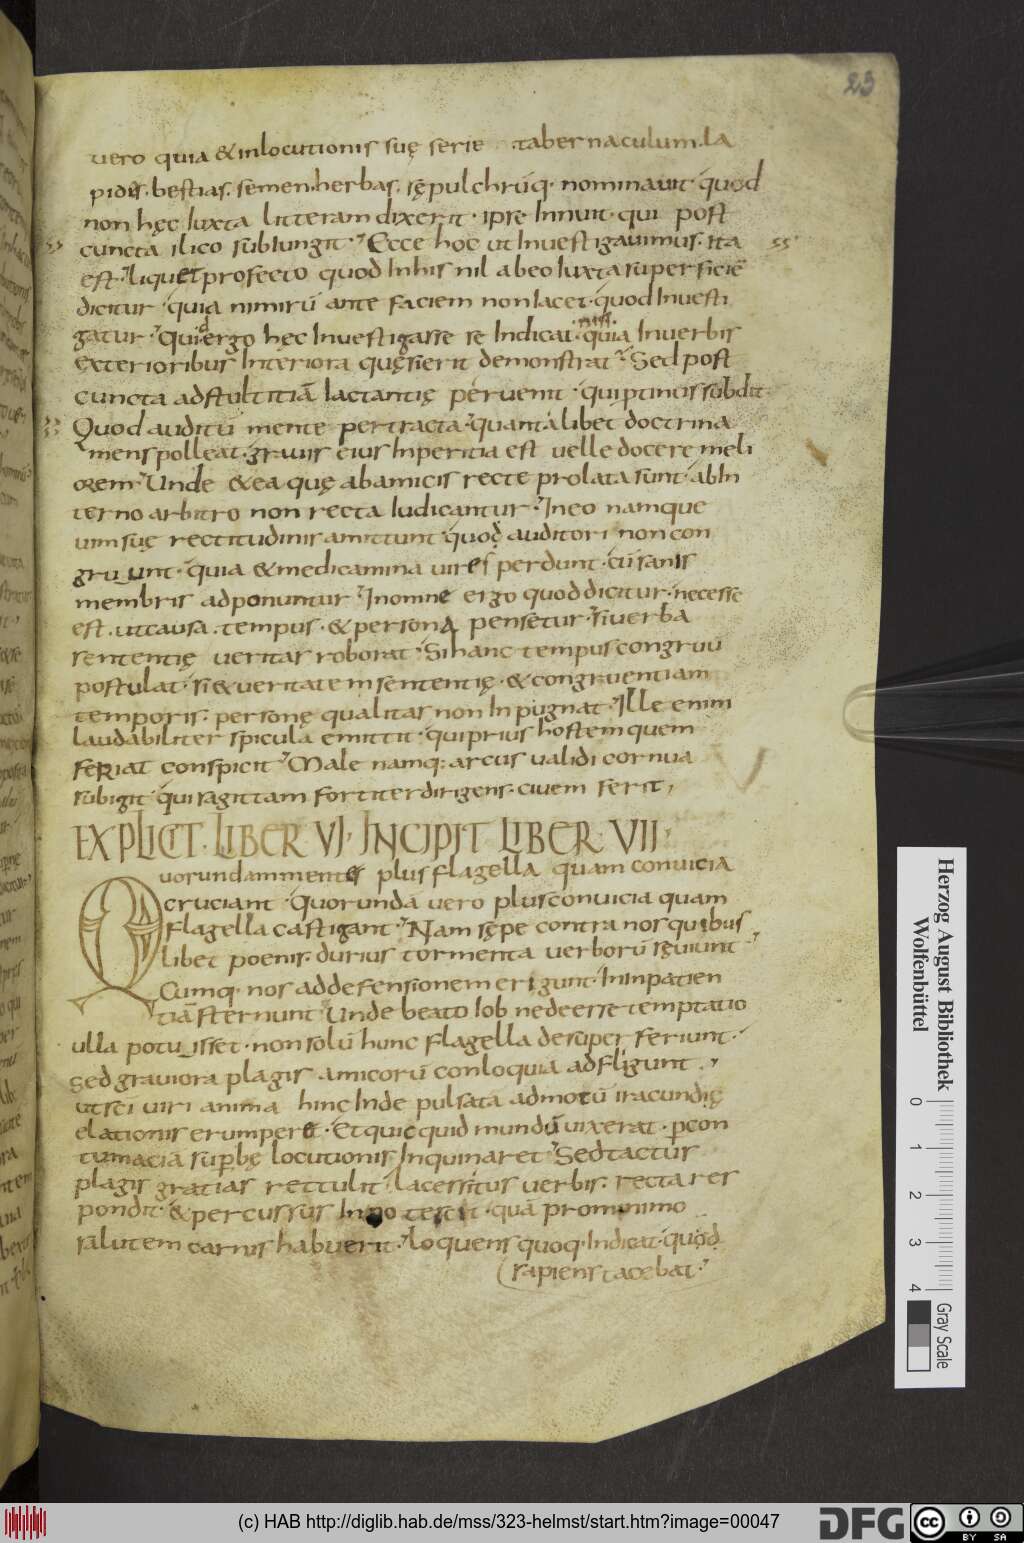 23
vero quia & inlocutionis suę serie tabernaculum. la
pidēs. bestias. semen. herbas. sępulchrūq· nominavit· quod
non hęc Iuxta litteram dixerit· ipse Innuit· qui post
cuncta ilico subIungit· Ecce hoc ut Investigavimus. ita
est· liquet profecto quod Inhis nil abeo Iuxta superficiē
dicitur· quia nimirū ante faciem non Iacet· quod Investi
gatur· Quid ergo hęc Investigasse se Indicat· nisi quia Inverbis
exterioribus Interiora quęsierit demonstrat· Sed post
cuncta adstultitiā Iactantię pervenit· qui ptinus subdit·
Quod auditū mente pertracta· quantalibet doctrina
mens polleat· gravis eius Inperitia est velle docere meli
orem· Unde & ea quę abamicis recte prolata sunt· abIn
terno arbitro non recta Iudicantur· Ineo namque
vim suę rectitudinis amittunt· quod auditori non con
gruunt· quia & medicamina vires perdunt· cū sanis
membris adponuntur· Inomne ergo quod dicitur· necesse
est. ut causa. tempus. & persona pensetur· si verba
sententię veritas roborat· Si hanc tempus congruū
postulat· si & veritatem sententię· & congruentiam
temporis. personę qualitas non Inpugnat· Ille enim
laudabiliter spicula emittit· qui prius hostem quem
feriat conspicit· Male namq: arcus validi cornua
subigit· qui sagittam fortiter dirigens. civem ferit,
EXPLICIT. LIBER VI, INCIPIT LIBER VII,
Quorundam mentes plus flagella quam convicia
cruciant· Quorunda vero plus convicia quam
flagella castigant· Nam sępe contra nos quibus
libet poenis. durius tormenta verborū sęviunt·
Cumq· nos ad defensionem erigunt· Ininpatien
tiā sternunt· Unde beato Iob nedeesse temptatio
ulla potuisset· non solū hunc flagella desuper feriunt·
sed graviora plagis amicorū conloquia adfligunt,
ut sci viri anima hinc Inde pulsata admotū iracundię
elationis erumperet· Et quicquid mundū vixerat· p con
tumaciā supbę locutionis Inquinaret· Sed tactus
plagis gratias rettulit· lacessitus verbis. recta res
pondit· & percussus In... quā pro minimo
salutem carnis habuerit· loquens quoq· Indicat· quod
sapiens tacebat·
Herzog August Bibliothek
Wolfenbüttel
0 1 2 3 4
Gray Scale
(c) HAB http://diglib.hab.de/mss/323-helmst/start.htm?image=00047
DFG
cc BY SA